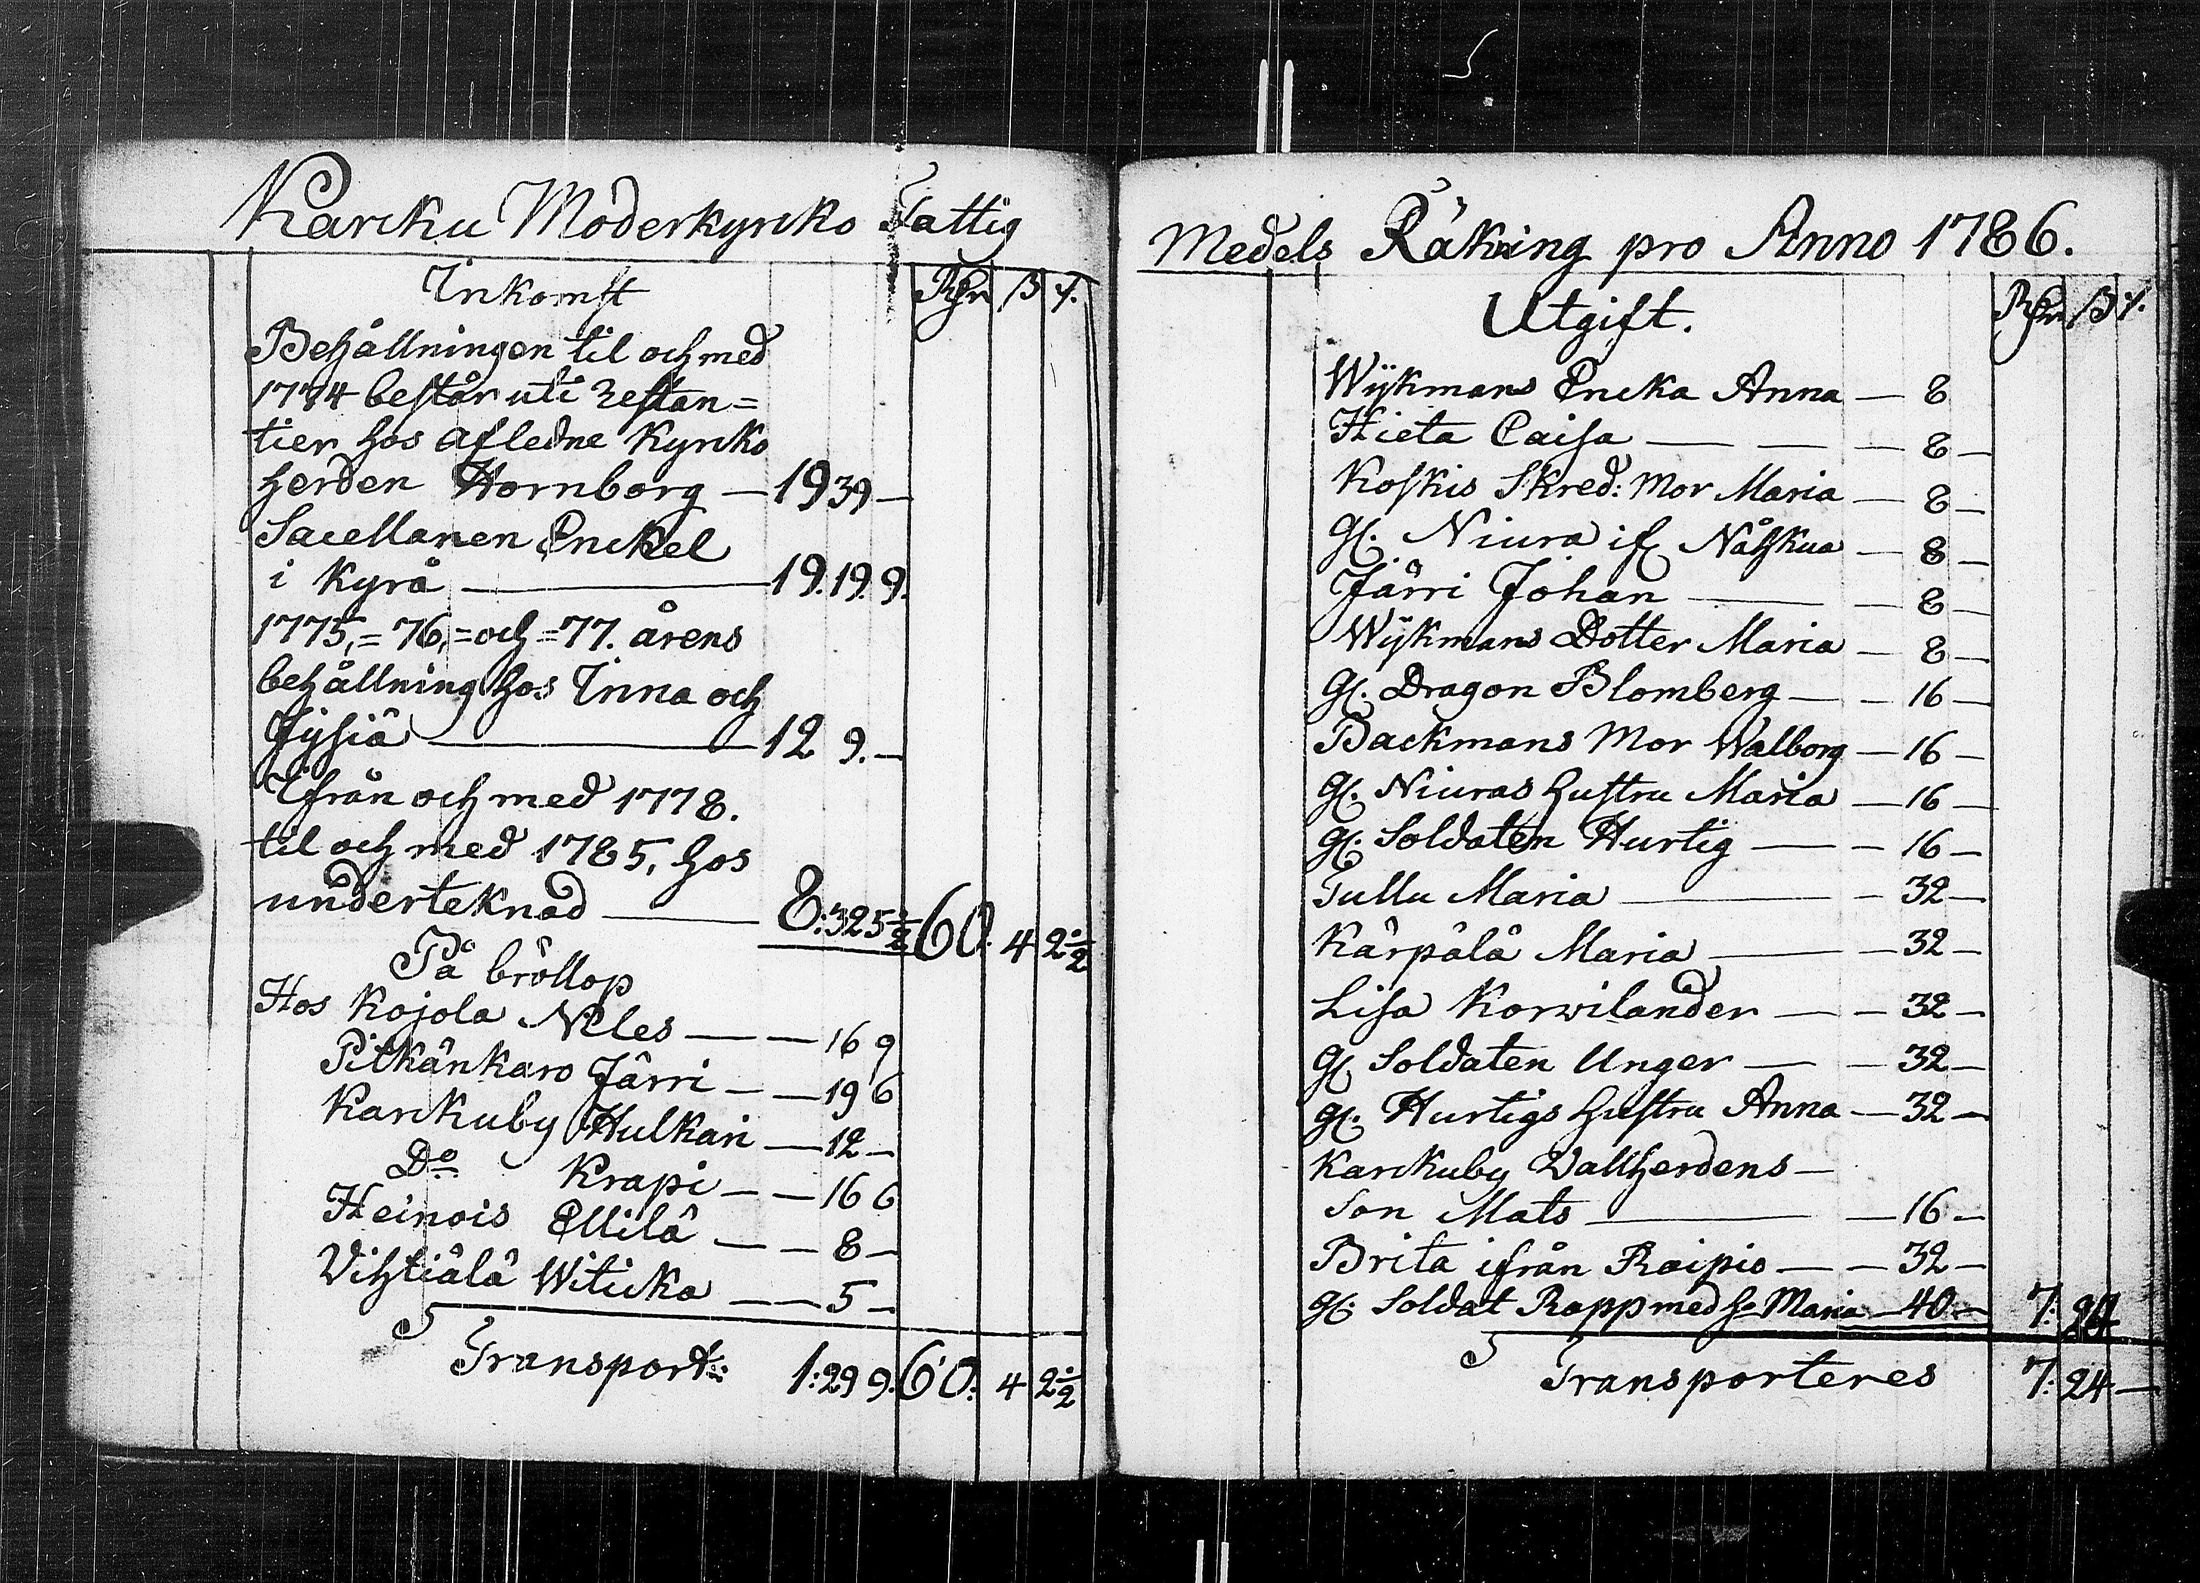 Karcku Moderkyrcko Fattig
Inkomst Rdr ß 
Behållningen til och med
1774 består uti restan=
tier hos afledne Kyrcko
herden Hornborg — 19 39 —
Sacellanen Enckel
i Kyrå — 19. 19. 9.
1775, = 76, = och = 77. årens
behållning hos Inna och
Jysiä — 12 9. —
Ifrån och med 1778.
til och med 1785, hos
underteknad — 8: 32 5 ½ 60. 4 2 ½
På bröllop
Hos Kojola Nils — — 16 9
Pitkänkaro Järri — — 19 6
Karckuby Hulkari — 12 —
Do Krapi — — 16 6
Heinois Ellilä — — 8 —
Vihtiälä Witicka — — 5 —
Transport: 1: 29 9. 60: 4 2 ½
Medels Räkning pro Anno 1786.
Utgift. Rdr ß
Wijkmans Encka Anna — 8
Hieta Caisa — — — 8 —
Koskis Skred: Mor Maria — 8 —
Gl. Niura if Nåhkua — 8 —
Järri Johan — — 8 —
Wijkmans Dotter Maria — 8 —
Gl. Dragon Blomberg — — 16 —
Backmans Mor Walborg — 16 —
Gl. Niuras hustru Maria — 16 —
Gl. Soldaten Hurtig — — 16 —
Tullu Maria — — 32 —
Kärpälä Maria — — 32 —
Lisa Korwilander — — 32 —
Gl. Soldaten Unger — — 32 —
Gl. Hurtigs hustru Anna — 32 —
Karckuby Vallherdens —
Son Mats — — 16 —
Brita ifrån Raipio — — 32 —
Gl. Soldat Rapp med h. Maria — 40 — 7: 24
Transporteres 7: 24 —